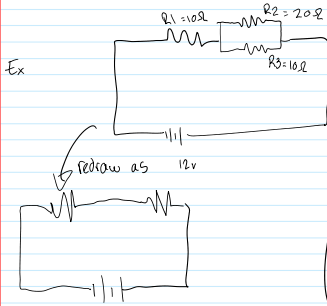 R1=10Ω
R2=20Ω
R3=10Ω
Ex
12v
redraw as